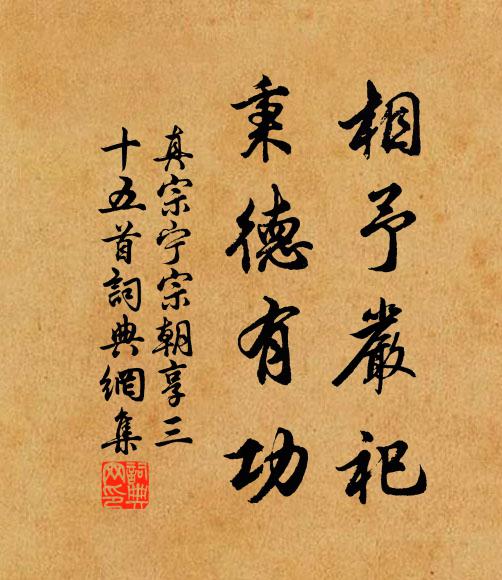 相予嚴祀
秉德有功
真宗宁宗朝享三
十五首詞典網集
詞典
网印